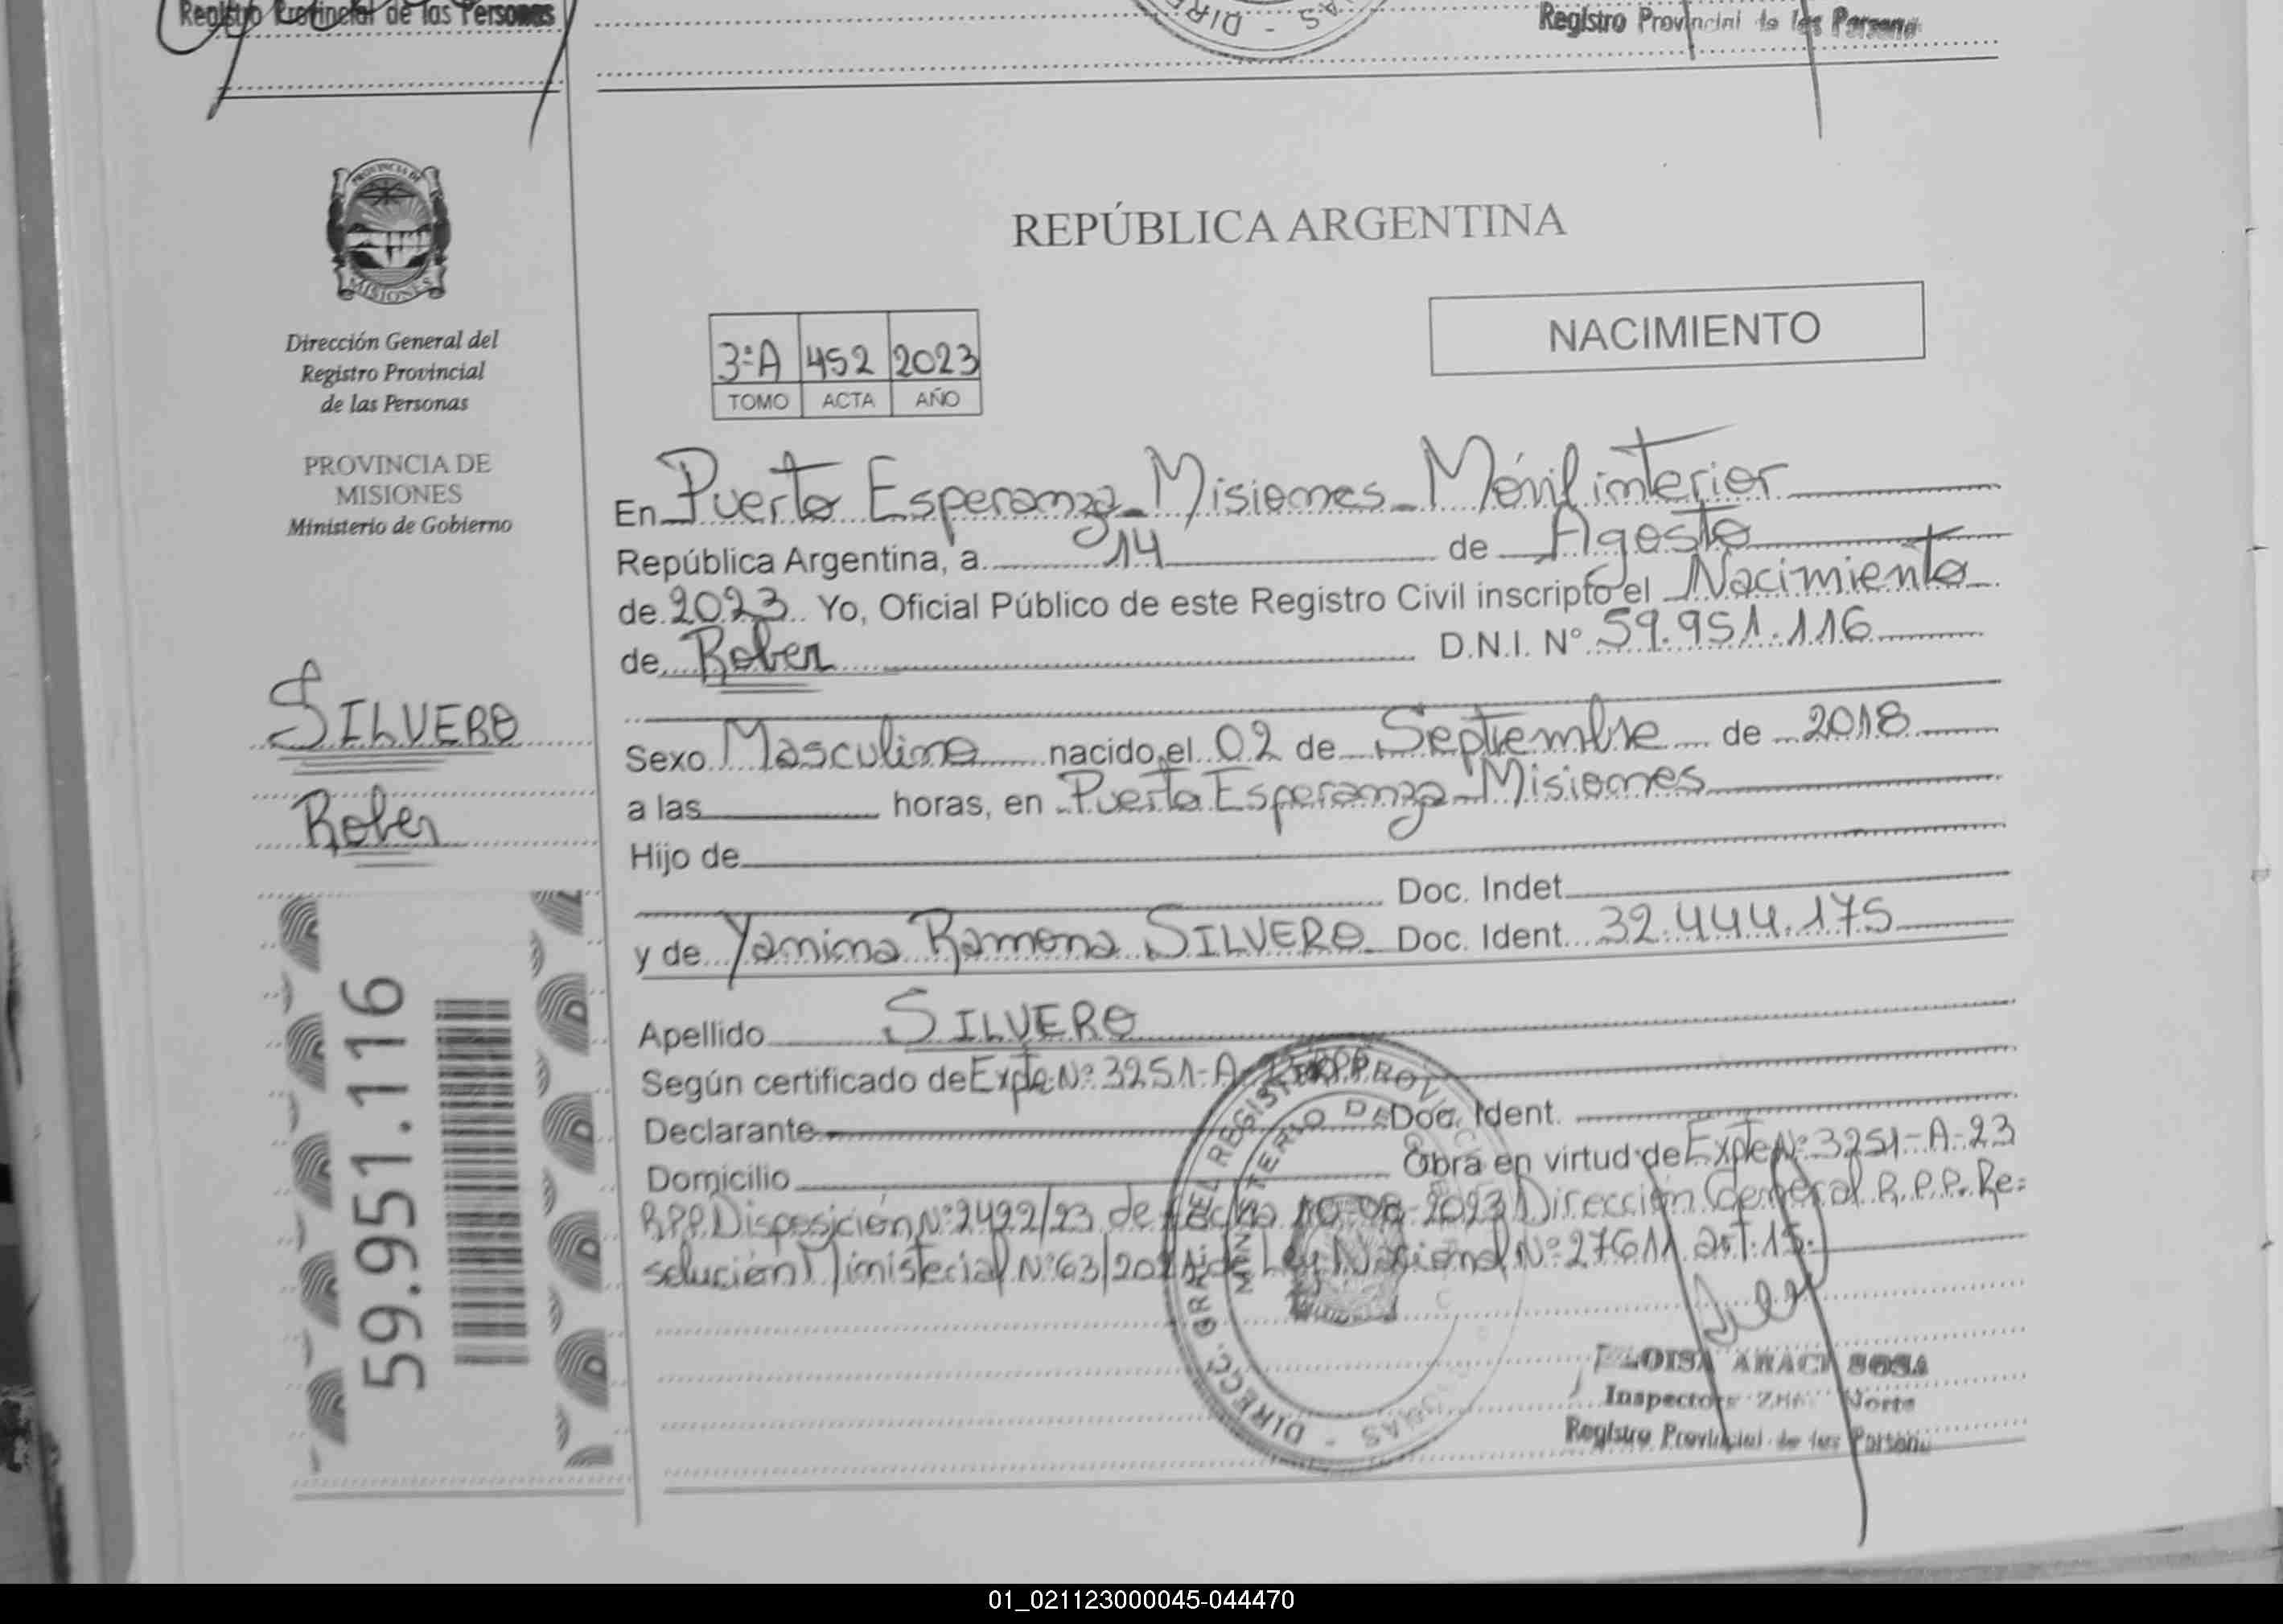 Registro Provincial de las Personas
Registro Provincial de las Persona
DIR
AS
PROVINCIA DE
MISIONES
Dirección General del
Registro Provincial
de las Personas
PROVINCIA DE
MISIONES
Ministerio de Gobierno
SILVERO
Rober
59.951.116
REPÚBLICA ARGENTINA
NACIMIENTO
3ºA 452 2023
TOMO ACTA AÑO
En Puerto Esperanza - Misiones - Móvil interior
República Argentina, a 14 de Agosto
de 2023 Yo, Oficial Público de este Registro Civil inscripto el Nacimiento
de Rober D.N.I. Nº 59.951.116
Sexo Masculino nacido el 02 de Septiembre de 2018
a las horas, en Puerto Esperanza - Misiones
Hijo de
Doc. Indet.
y de Yamina Ramona SILVERO Doc. Ident. 32.444.175
Apellido SILVERO
Según certificado de Expte Nº 3251-A-
Declarante Doc. Ident.
Domicilio Obra en virtud de Expte Nº 3251-A-23
R.P.P. Disposición Nº 2422/23 de fecha 10-08-2023 Dirección General R.P.P. Re=
solución Ministerial Nº 63/2021 de Ley Nacional Nº 27611 art. 15.
DIRECC. GRAL DEL REGISTRO PROVINC
MINISTERIO DE G
ELOISA ARACI SOSA
Inspectora Zona Norte
Registro Provincial de las Persona
01_021123000045-044470